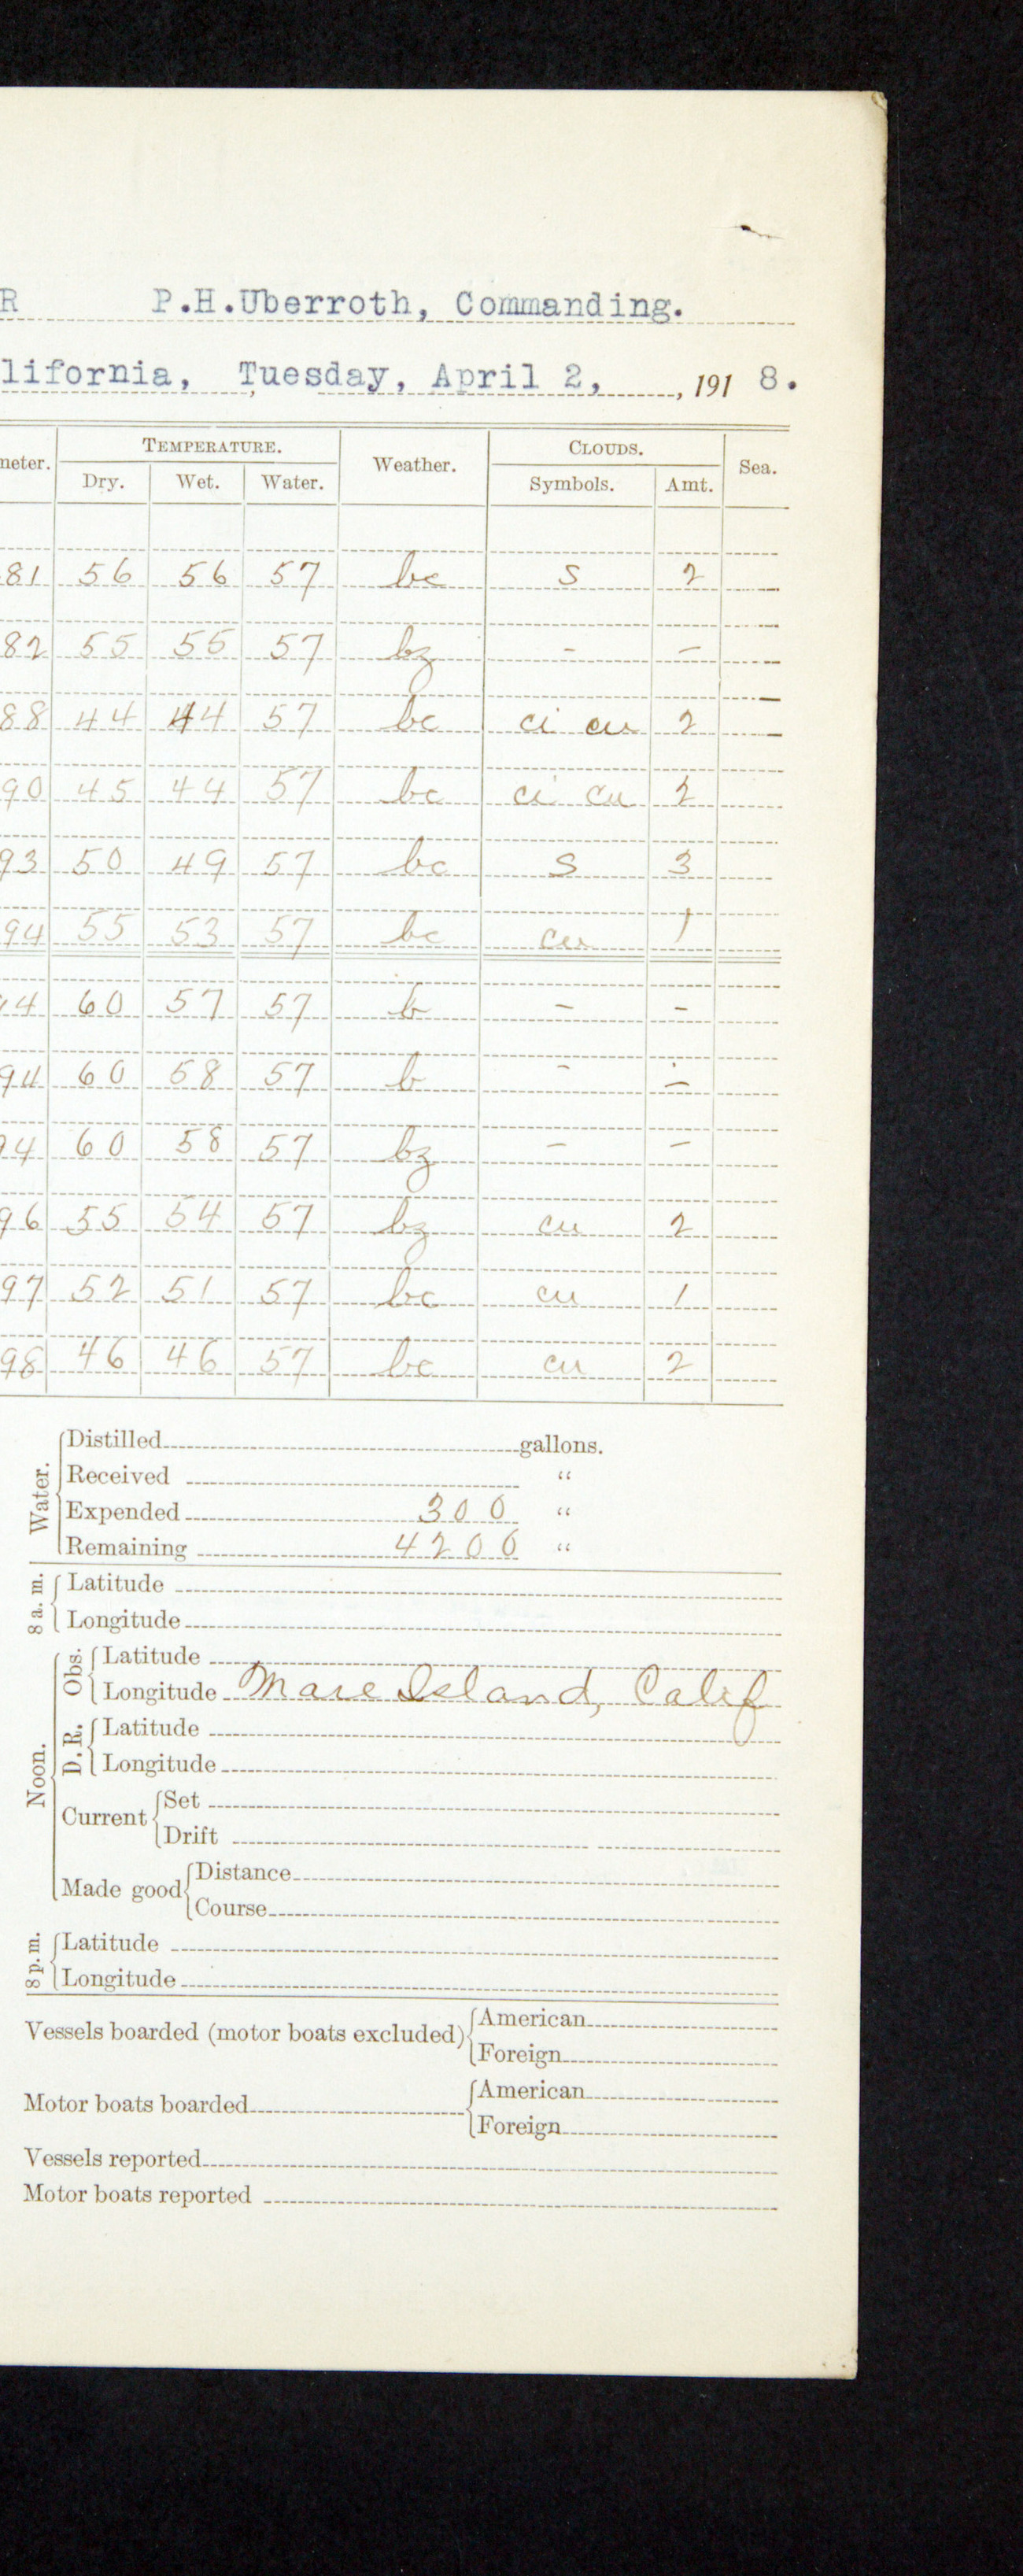 R P.H.Uberroth, Commanding.
lifornia, Tuesday, April 2, , 191 8.
meter. TEMPERATURE. Weather. CLOUDS. Sea.
Dry. Wet. Water. Symbols. Amt.
81 56 56 57 bc S 2 —
82 55 55 57 bz - - —
88 44 44 57 bc ci cu 2 —
90 45 44 57 bc ci cu 2
93 50 49 57 bc S 3
94 55 53 57 bc cu 1
94 60 57 57 b - -
94 60 58 57 b - -
94 60 58 57 bz - -
96 55 54 57 bz cu 2
97 52 51 57 bc cu 1
98 46 46 57 bc cu 2
Water.
Distilled gallons.
Received "
Expended 300 "
Remaining 4200 "
8 a. m.
Latitude
Longitude
Noon.
Obs.
Latitude
Longitude Mare Island, Calif
D. R.
Latitude
Longitude
Current
Set
Drift
Made good
Distance
Course
8 p. m.
Latitude
Longitude
Vessels boarded (motor boats excluded) American
Foreign
Motor boats boarded American
Foreign
Vessels reported
Motor boats reported